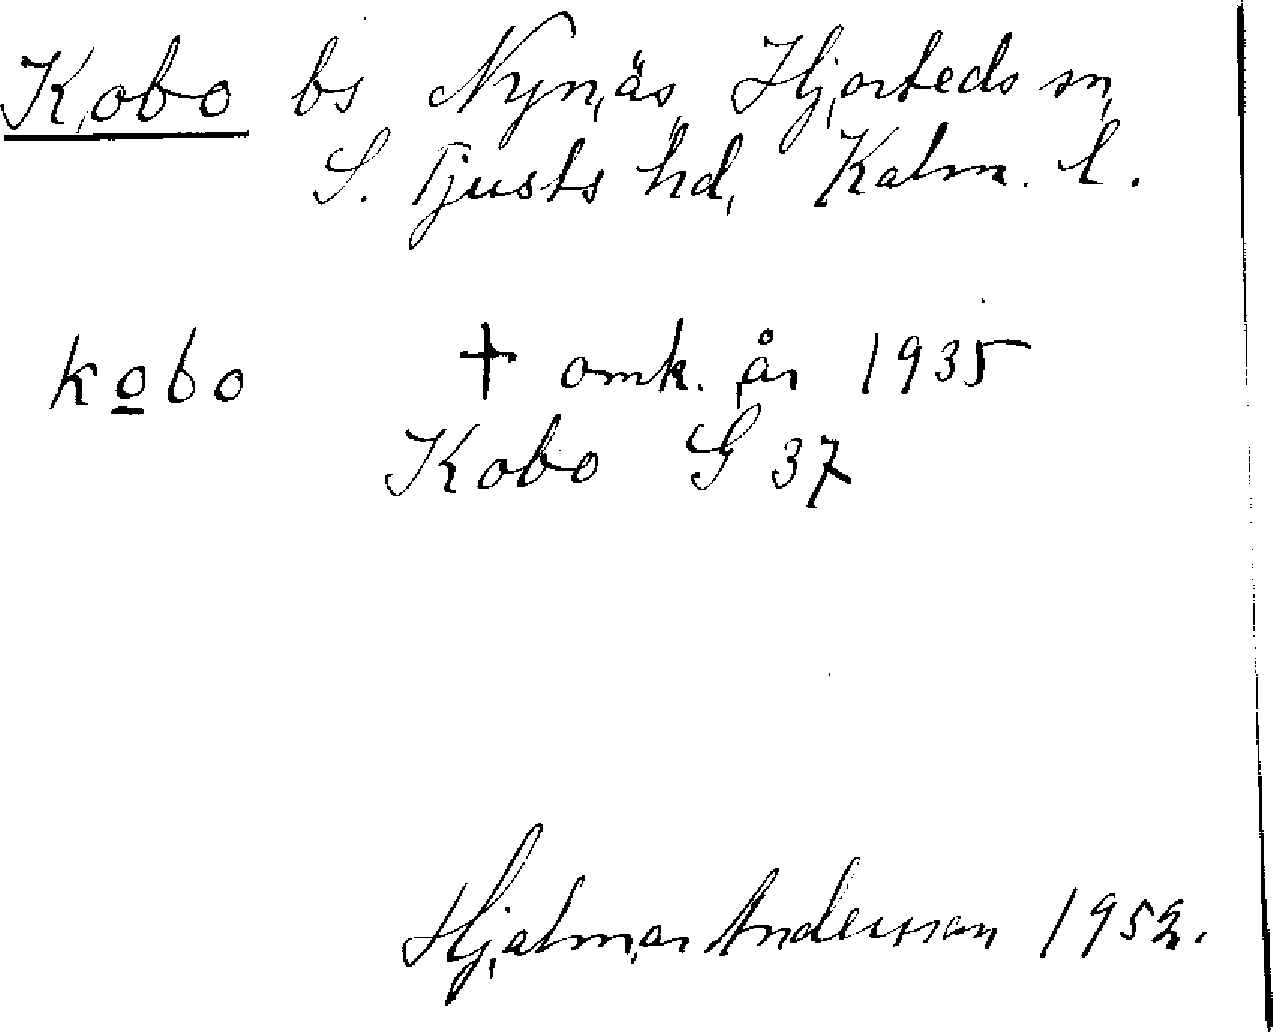 Kobo bs Nynäs, Hjorteds sn,
S. Tjusts hd, Kalm. l.
kobo † omk. år 1935
Kobo G 37
Hjalmar Andersson 1952.